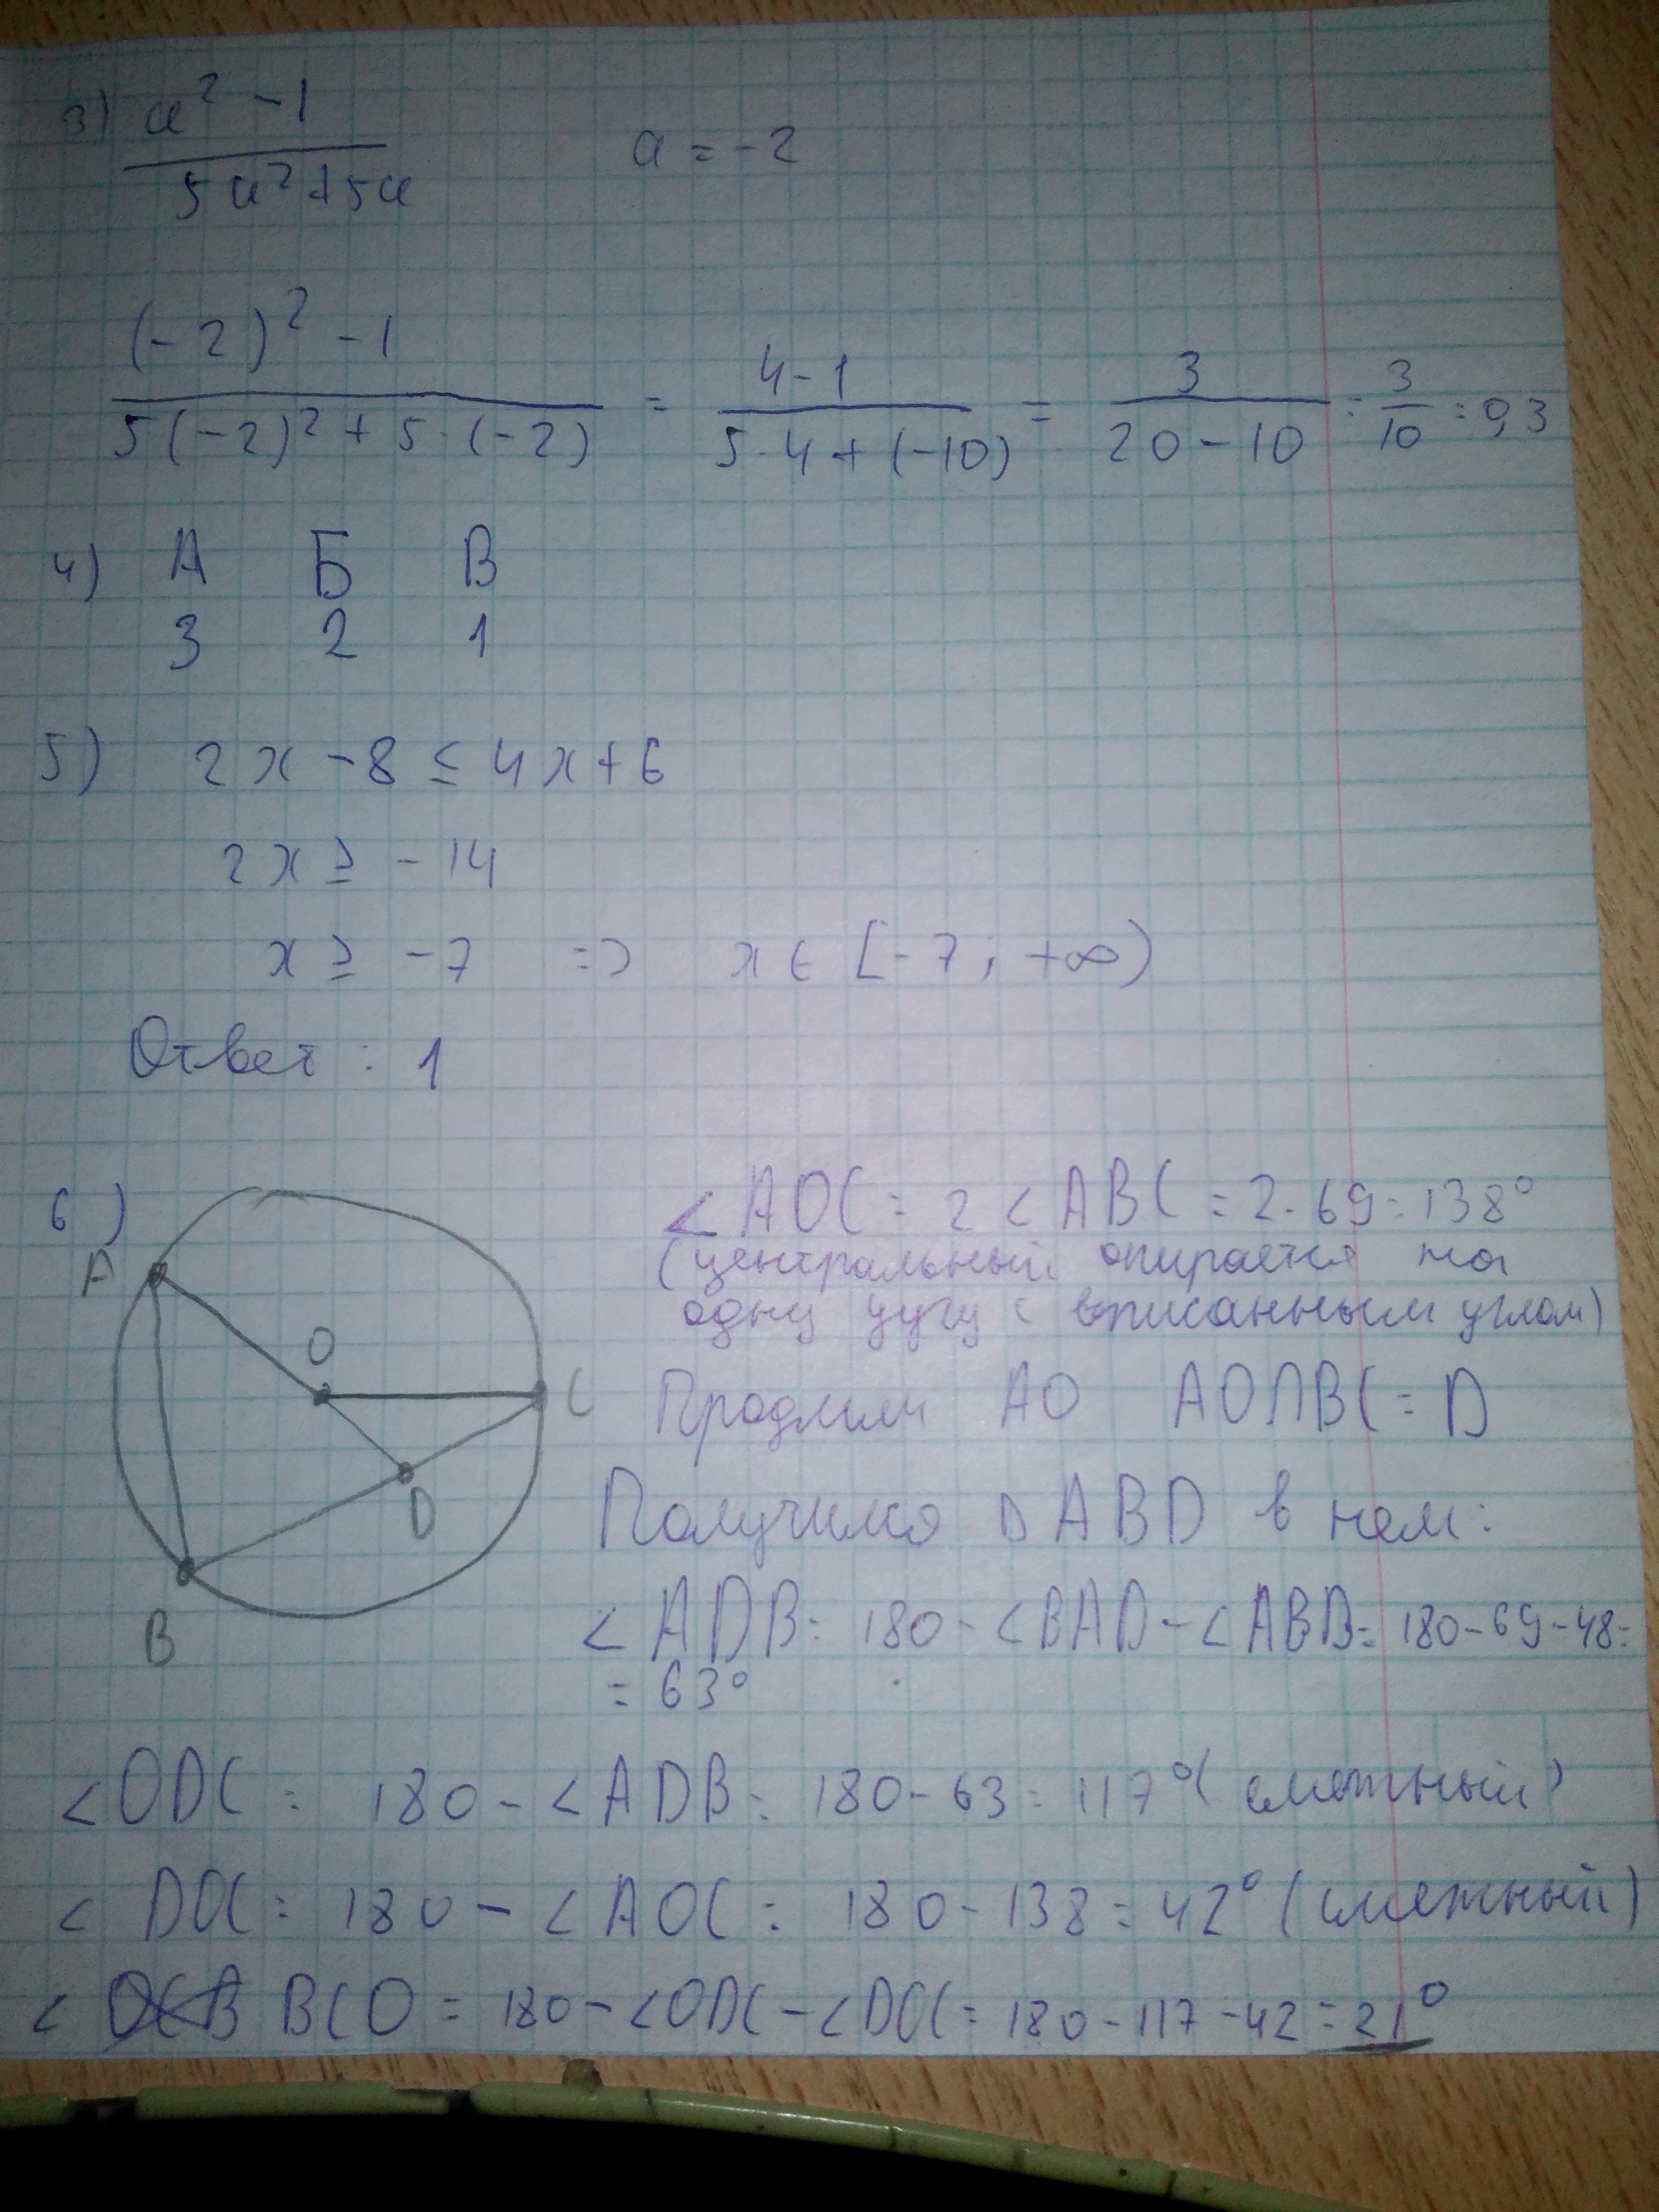 3) a² - 1 / 5a² + 5a    a = -2
(-2)² - 1 / 5(-2)² + 5·(-2) = 4-1 / 5·4+(-10) = 3 / 20-10 = 3/10 = 0,3
4) А Б В
3 2 1
5) 2x - 8 ≤ 4x + 6
2x ≥ -14
x ≥ -7 => x ∈ [-7; +∞)
Ответ: 1
6)
A
O
C
D
B
∠AOC = 2∠ABC = 2·69 = 138°
(центральный опирается на
одну дугу с вписанным углом)
Продлили AO AO∩BC = D
Получился △ABD в нем:
∠ADB = 180 - ∠BAD - ∠ABD = 180-69-48=
= 63°
∠ODC = 180 - ∠ADB = 180-63 = 117° (смежный)
∠DOC = 180 - ∠AOC = 180-138 = 42° (смежный)
∠ BCO = 180 - ∠ODC - ∠DOC = 180-117-42 = 21°